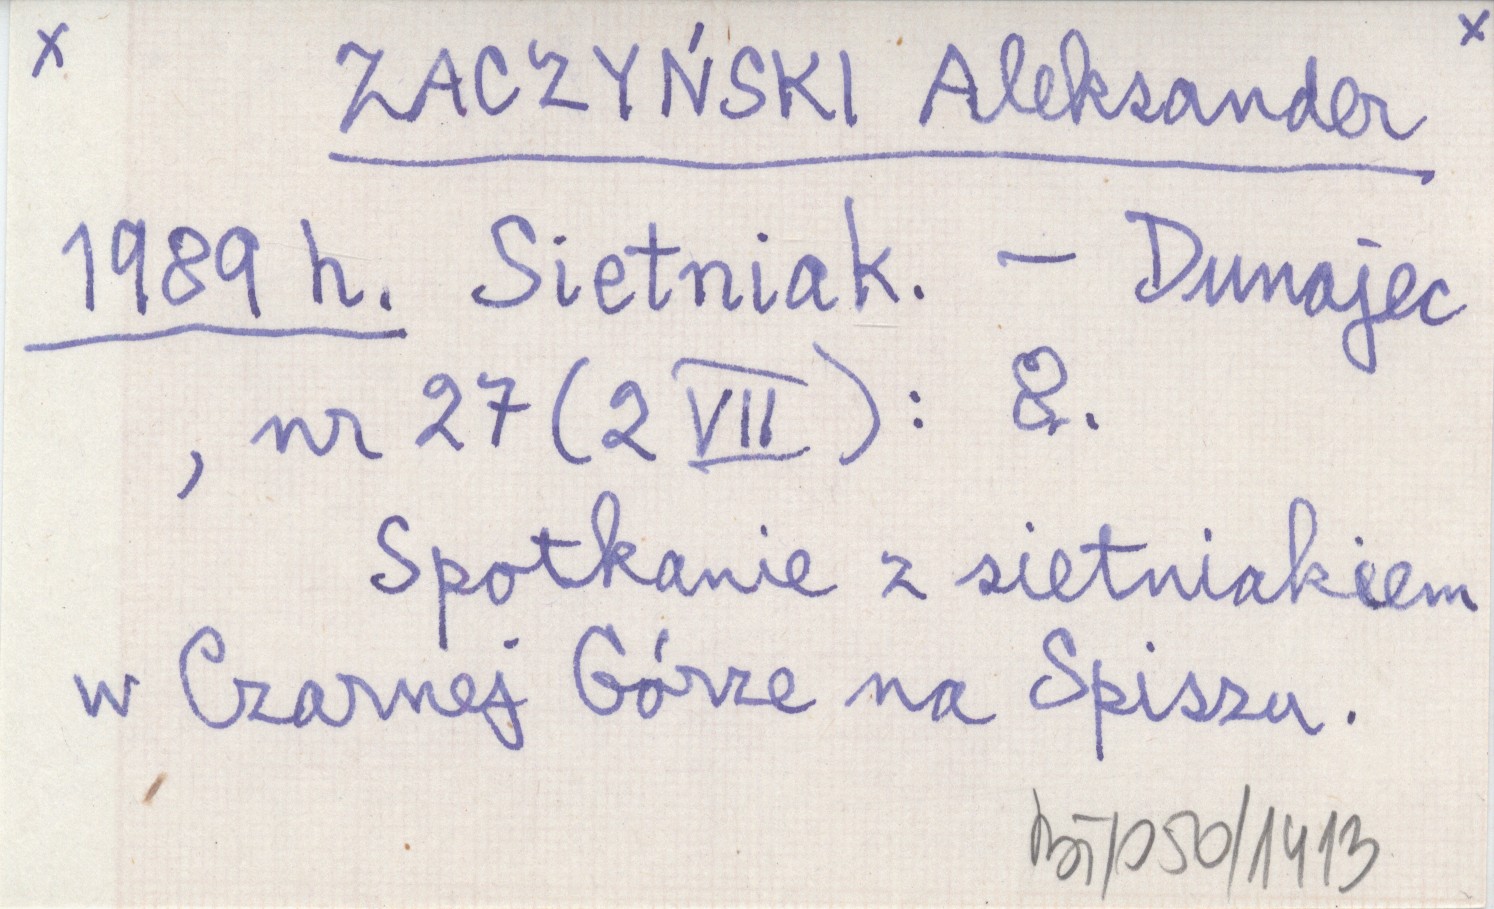 x x
ZACZYŃSKI Aleksander
1989 h. Sietniak. – Dunajec
, nr 27 (2 VII): 8.
Spotkanie z sietniakiem
w Czarnej Górze na Spiszu.
/D50/1413